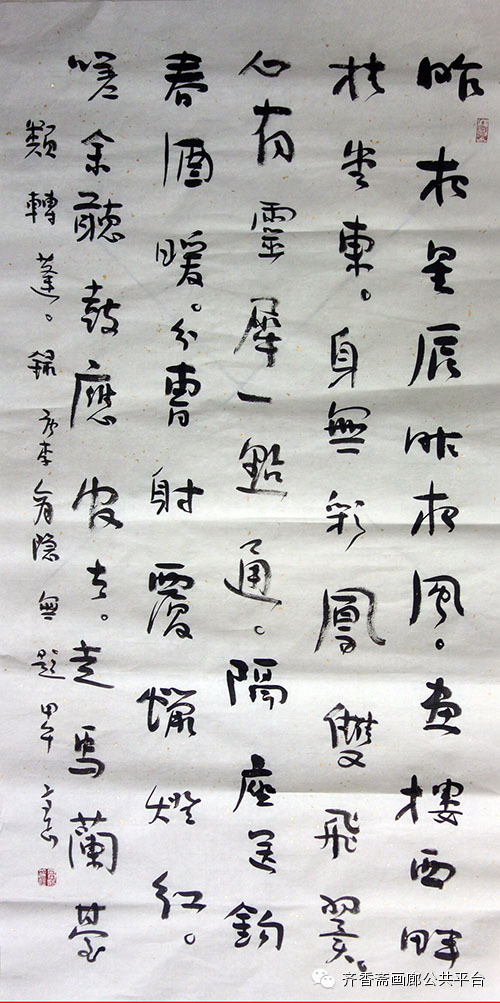 昨夜星辰昨夜風。畫樓西畔
桂堂東。身無彩鳳雙飛翼。
心有靈犀一點通。隔座送鉤
春酒暖。分曹射覆蠟燈紅。
嗟余聽鼓應官去。走馬蘭臺
類轉蓬。錄唐李商隱無題 甲午
齐香斋画廊公共平台